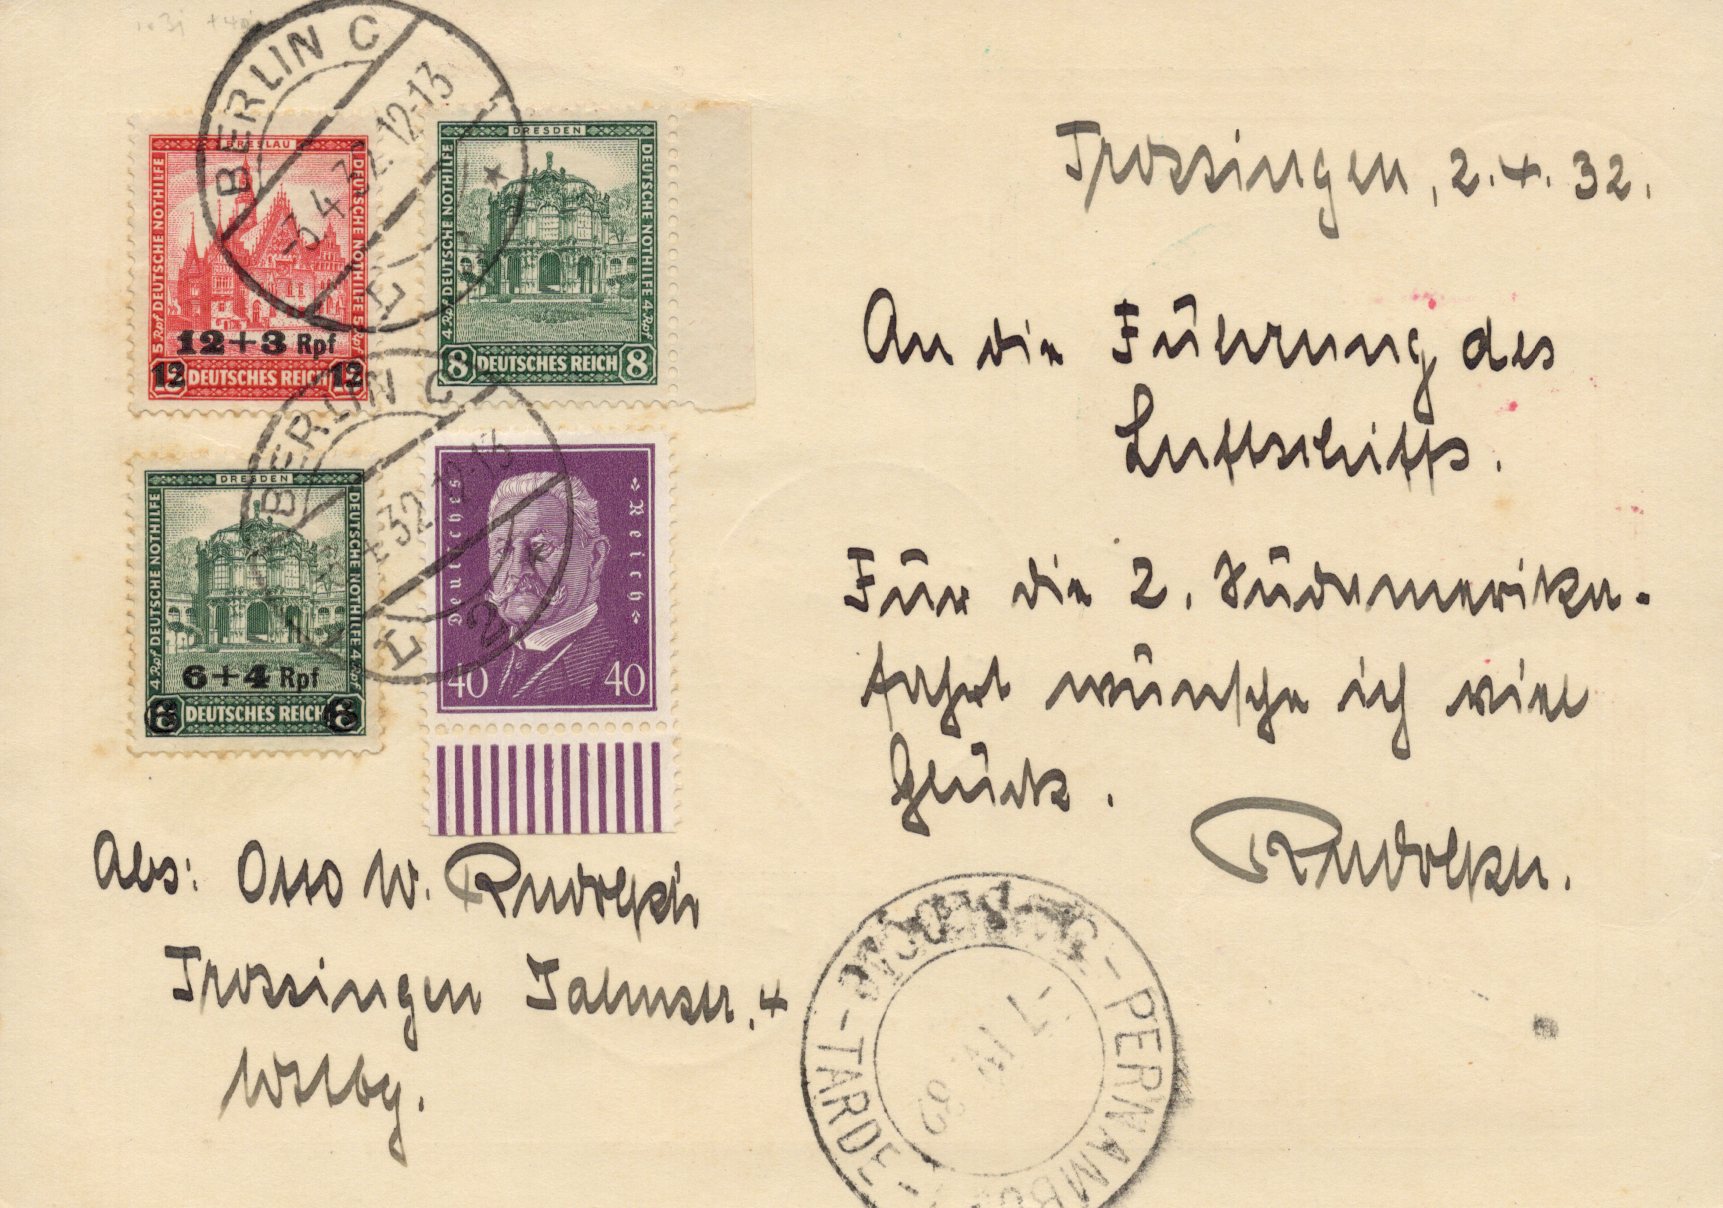 BERLIN C
-3.4.32.12-13
BRESLAU
5 Rpf DEUTSCHE NOTHILFE
DEUTSCHE NOTHILFE 5 Rpf
12+3 Rpf
12 DEUTSCHES REICH 12
DRESDEN
4 Rpf DEUTSCHE NOTHILFE
DEUTSCHE NOTHILFE 4 Rpf
8 DEUTSCHES REICH 8
BERLIN C
32.12-13
2
DRESDEN
4 Rpf DEUTSCHE NOTHILFE
DEUTSCHE NOTHILFE 4 Rpf
6+4 Rpf
6 DEUTSCHES REICH 6
Deutsches Reich
40 40
Trossingen, 2.4.32.
An die Führung des
Luftschiffs.
Für die 2. Südamerika-
fahrt wünsche ich viel
Glück.
Abs: Otto W.
Trossingen
Wttbg.
PERNAMBU
TARDE
7 IV 32